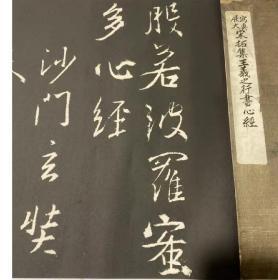 宋拓集王羲之行書心經
般若波羅蜜
多心經
沙門玄奘